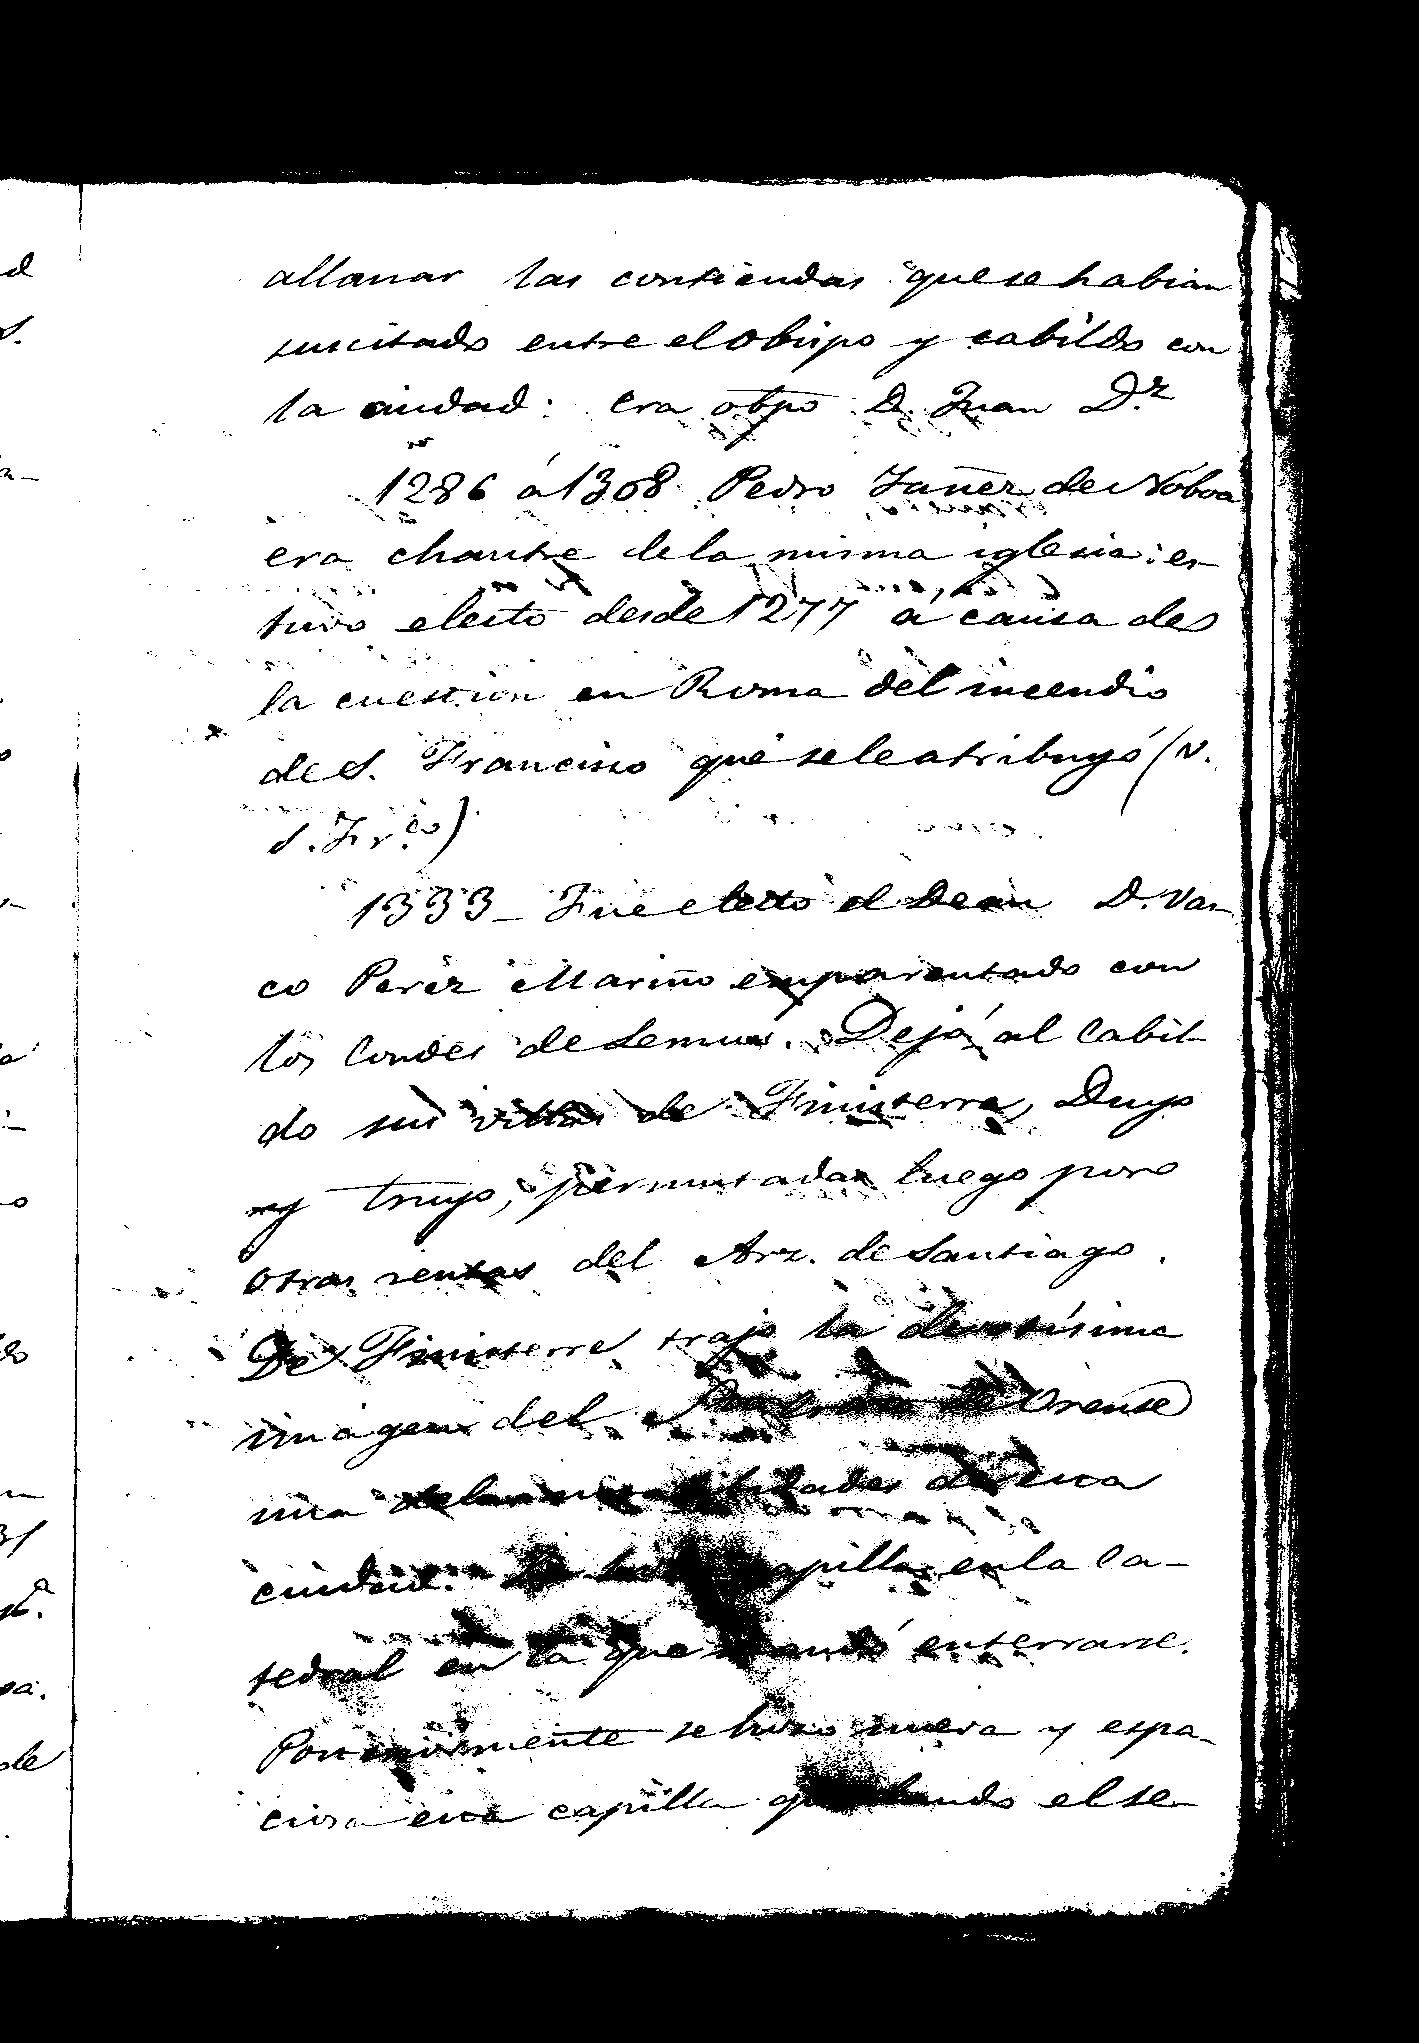 allanar las contiendas que se habian
suscitado entre el obispo y cabildo con
la ciudad: era obpo D. Juan D.z
1286 á 1308 Pedro Yañez de Nóboa
era chantre de la misma iglesia: es-
tuvo electo desde 1277 á causa de
la cuestion en Roma del incendio
de S. Francisco que se le atribuyó (V.
S. Fr.co)
1333_ Fue electo el Dean D. Vas-
co Perez Mariño emparentado con
los Condes de Lemus. Dejó al Cabil-
do sus villas de Finisterra, Duyo
y Truyo, permutadas luego por
otras rentas del Arz. de Santiago.
De Finisterre trajo la devotísima
imagen del de Orense
una de esa
ciudad. capilla en la Ca-
tedral en la que mandó enterrarse.
Posteriormente se hizo nueva y espa-
ciosa esa capilla quedando el se-